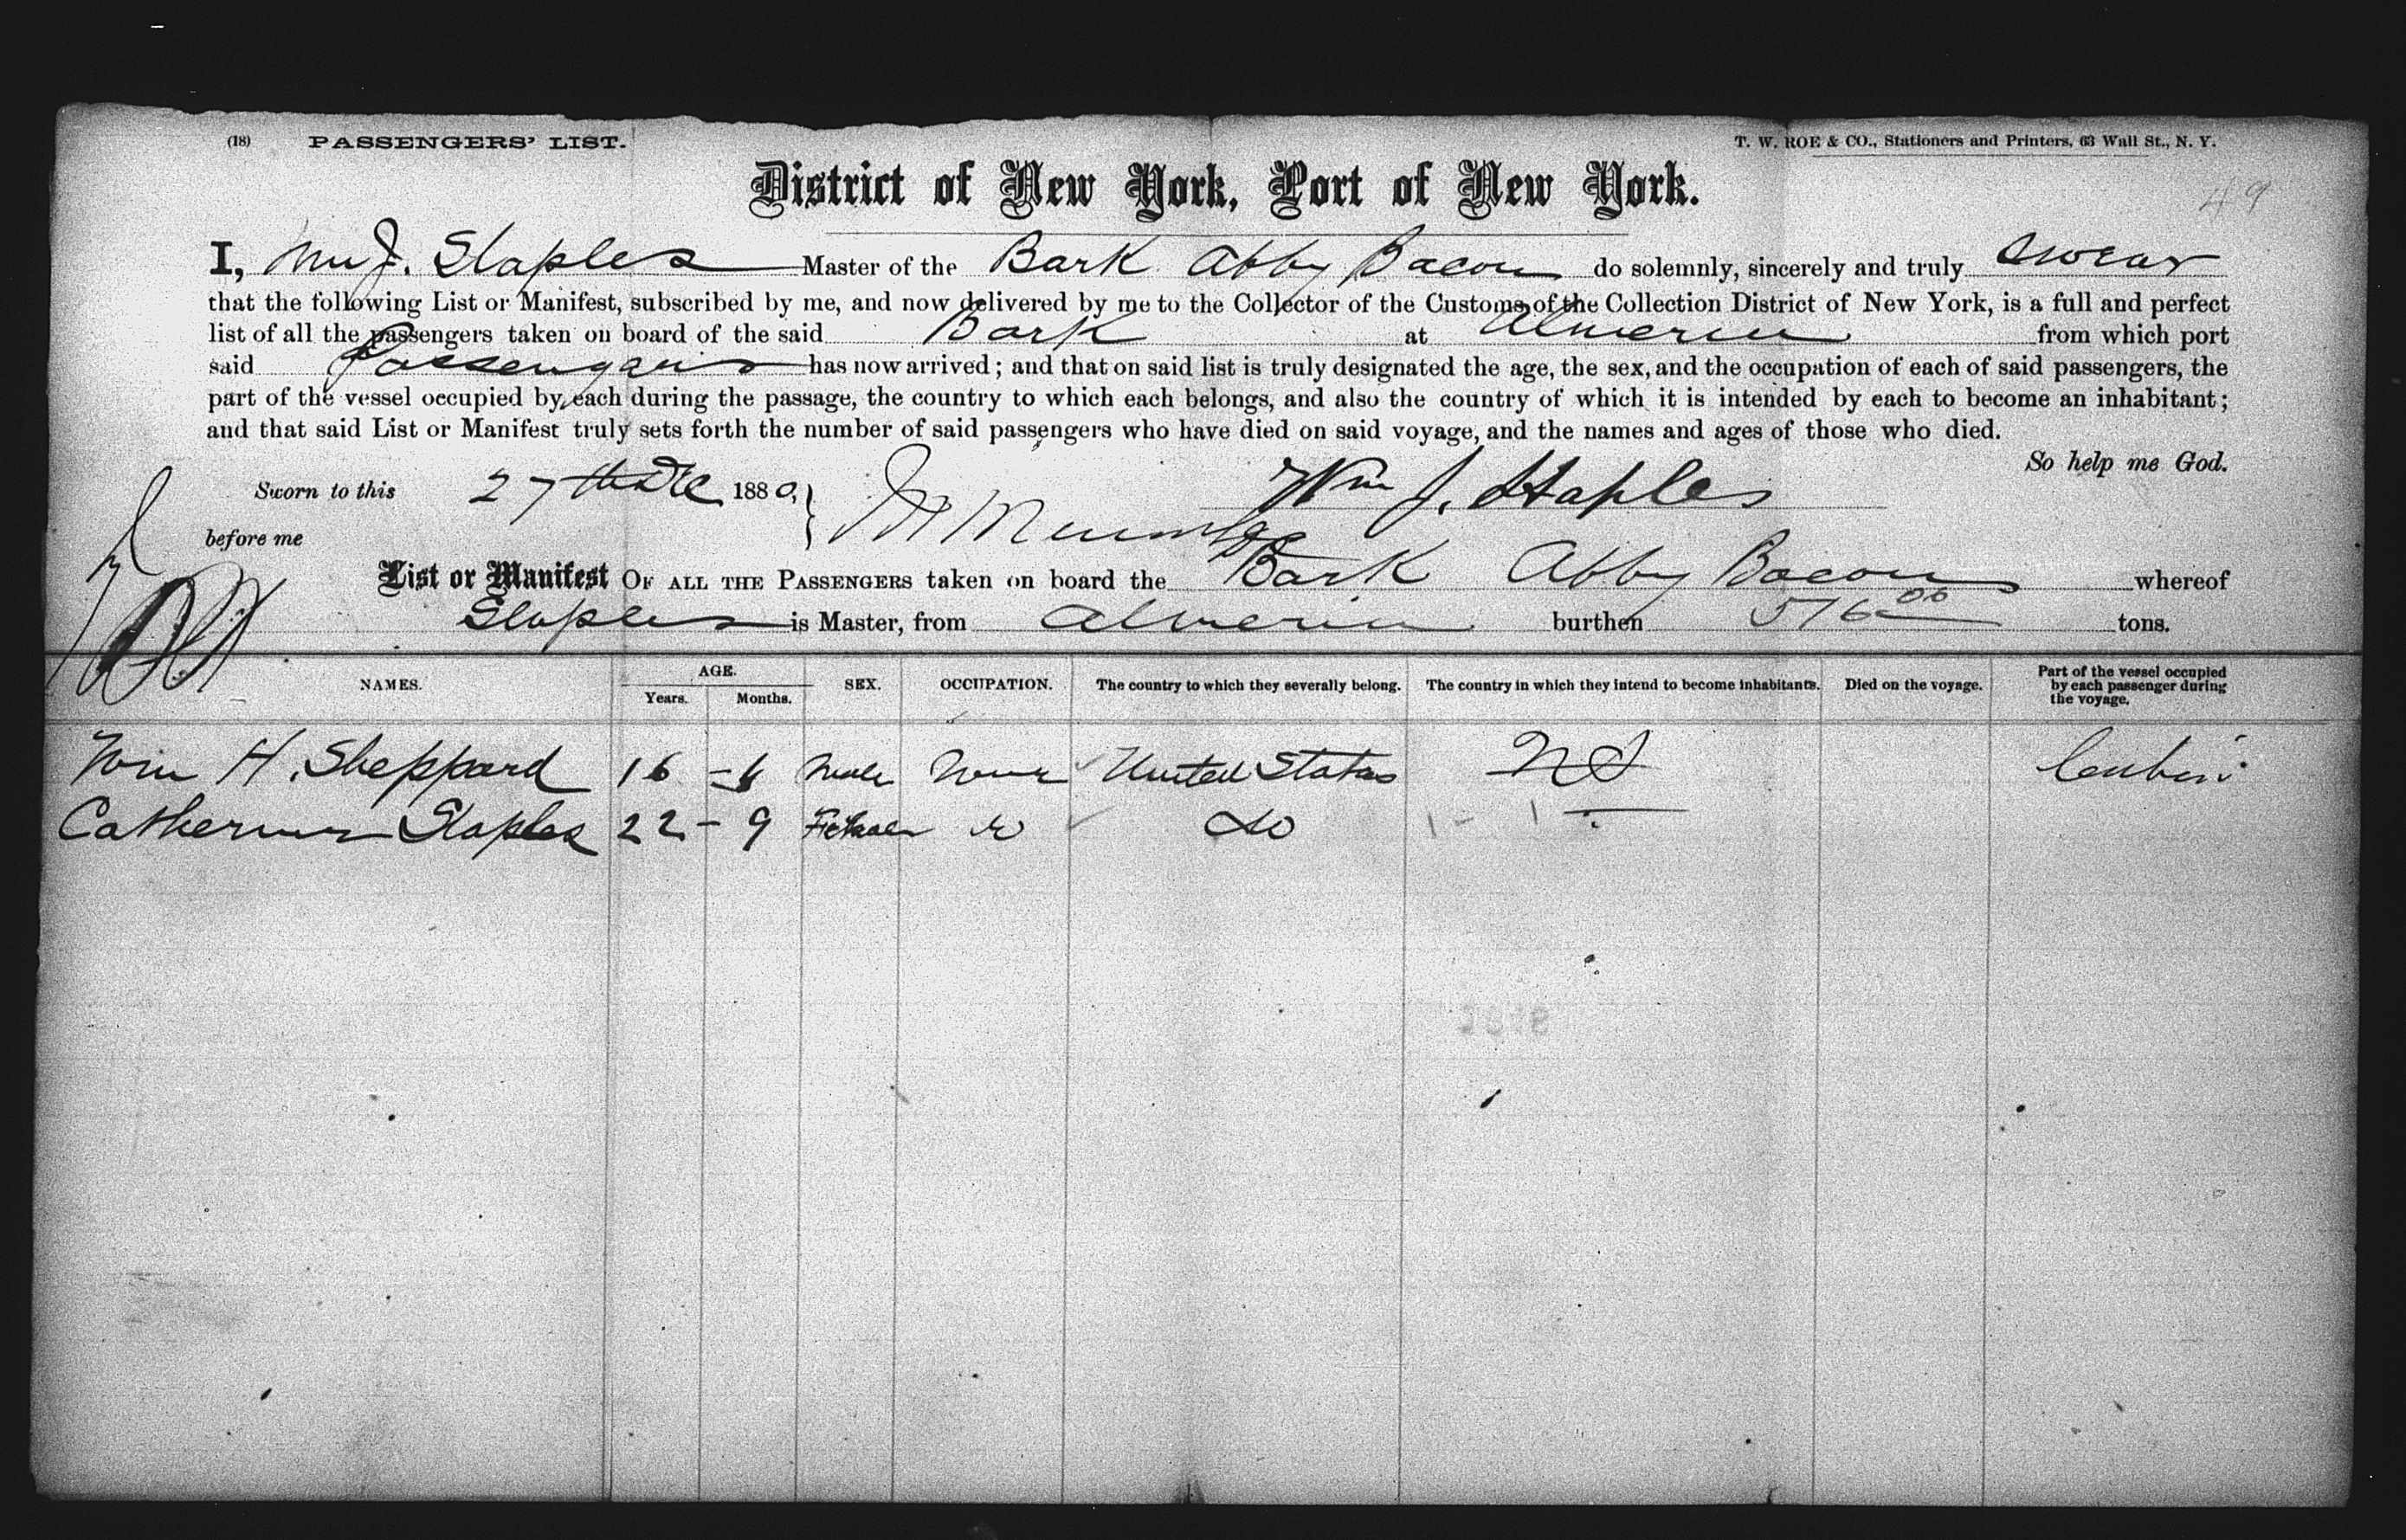 (18) PASSENGERS' LIST. T. W. ROE & CO., Stationers and Printers, 63 Wall St., N. Y.
49
District of New York, Port of New York.
I, Wm J. Staples Master of the Bark Abby Bacon do solemnly, sincerely and truly swear
that the following List or Manifest, subscribed by me, and now delivered by me to the Collector of the Customs of the Collection District of New York, is a full and perfect
list of all the passengers taken on board of the said Bark at Almeria from which port
said Passengers has now arrived; and that on said list is truly designated the age, the sex, and the occupation of each of said passengers, the
part of the vessel occupied by each during the passage, the country to which each belongs, and also the country of which it is intended by each to become an inhabitant;
and that said List or Manifest truly sets forth the number of said passengers who have died on said voyage, and the names and ages of those who died.
So help me God.
Sworn to this 27th Dec 1880, Wm J. Staples
before me
List or Manifest OF ALL THE PASSENGERS taken on board the Bark Abby Bacon whereof
Staples is Master, from Almeria burthen 516 00 tons.
NAMES. AGE. Years. Months. SEX. OCCUPATION. The country to which they severally belong. The country in which they intend to become inhabitants. Died on the voyage. Part of the vessel occupied by each passenger during the voyage.
Wm H. Sheppard 16 - Male None United States Cabin
Catherine Staples 22 - 9 Female do do